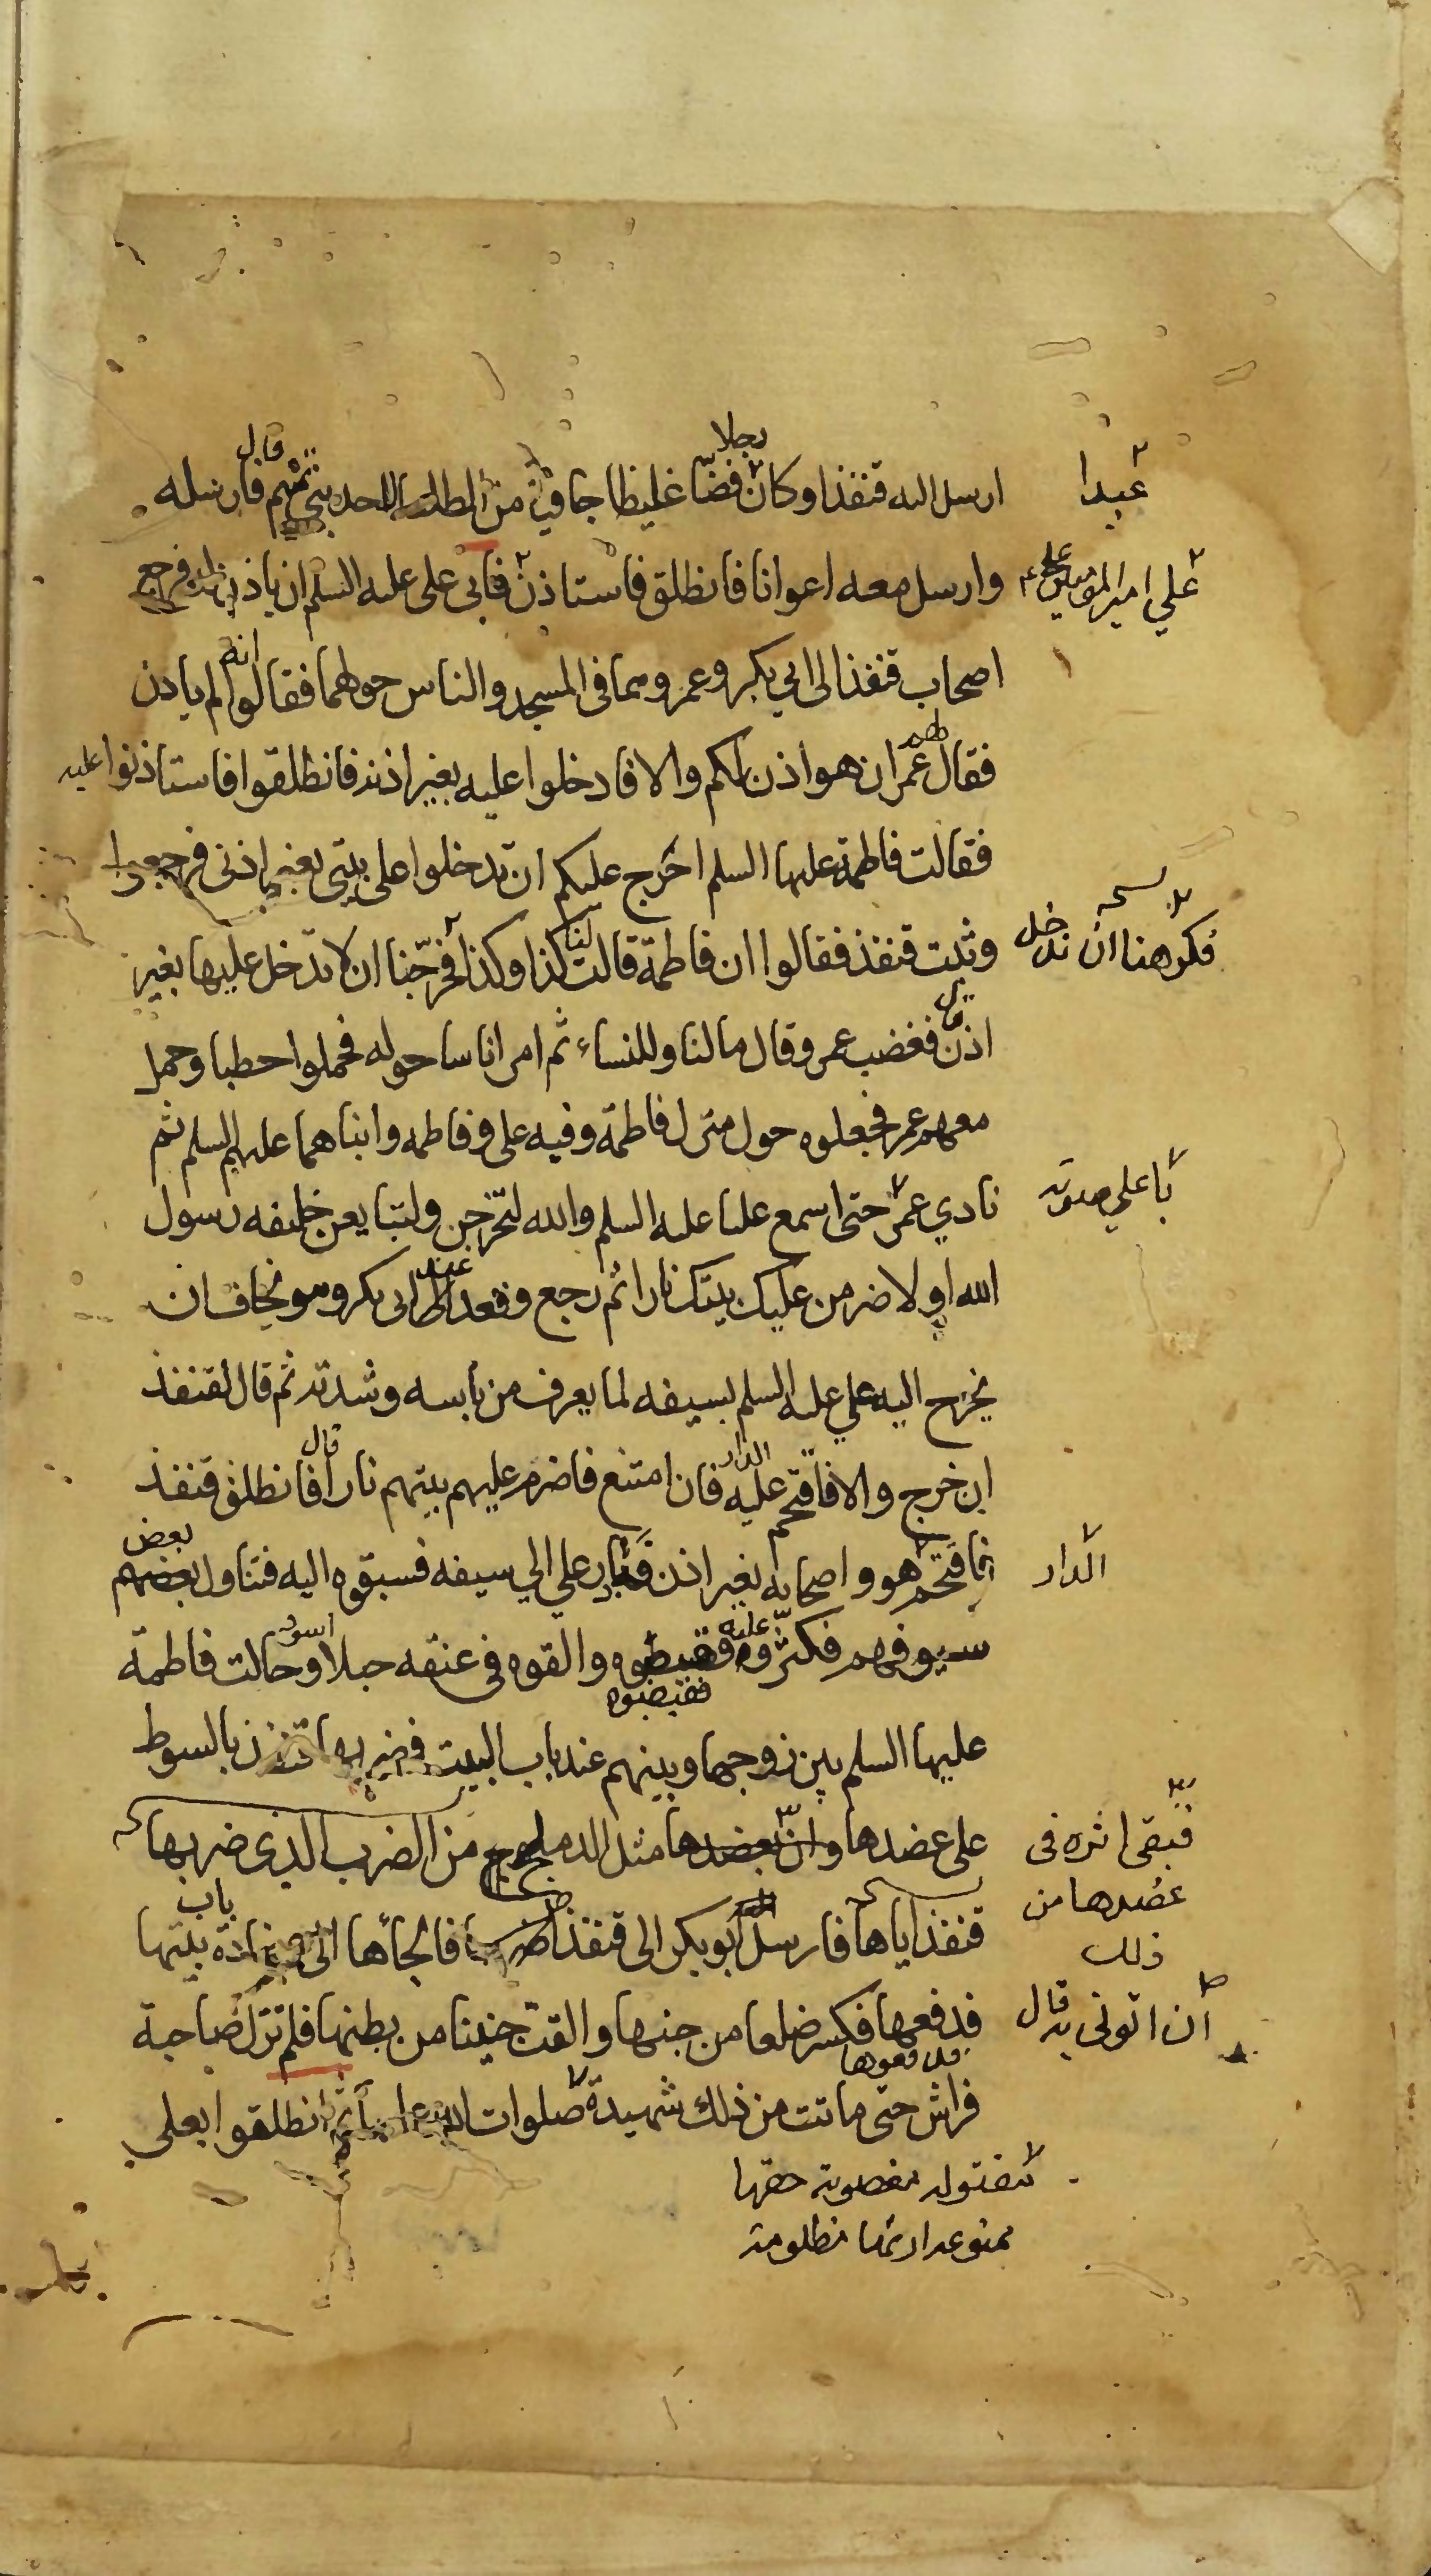 رجلا قال
ارسل اليه قنفذا وكان فضّا غليظا جافيا من الطلقا احد بني تيم فارسله
عبدا
وارسل معه اعوانا فانطلق فاستاذن فابى على عليه السلم ان ياذن لهم فرجع
علي امير المؤمنين
اصحاب قنفذ الى ابي بكر وعمر وهما في المسجد والناس حولهما فقالوا انه لم ياذن
فقال عمر ان هو اذن لكم والا فادخلوا عليه بغير اذنه فانطلقوا فاستاذنوا عليه
فقالت فاطمة عليها السلم احرج عليكم ان تدخلوا على بيتي بغير اذنى فرجعوا
وثبت قنفذ فقالوا ان فاطمة قالت لنا كذا وكذا فحرجنا ان لا ندخل عليها بغير
فكرهنا ان ندخل
نسخه
اذن فغضب عمر وقال مالنا وللنساء ثم امر اناسا حوله فحملوا حطبا وحمل
معهم عمر فجعلوه حول منزل فاطمة وفيه على وفاطمه وابناهما عليهم السلم ثم
نادي عمر حتى اسمع عليا عليه السلم والله لتخرجن ولتبايعن خليفه رسول
باعلي صوته
الله او لاضرمن عليك بيتك نارا ثم رجع وقعد عند ابى بكر وهو يخاف ان
يخرج اليه علي عليه السلم بسيفه لما يعرف من باسه وشدته ثم قال لقنفذ
ان خرج والا فاقتحم عليه الدار فان امتنع فاضرم عليهم بيتهم نارا قال فانطلق قنفذ
فاقتحم هو واصحابه بغير اذن فبادر علي الي سيفه فسبقوه اليه فتناول بعضهم بعض
الدار
سيوفهم فكثروا عليه فقبضوه والقوه في عنقه حبلا اسود وحالت فاطمة
فقبضوه
عليها السلم بين زوجها وبينهم عند باب البيت فضربها قنفذ بالسوط
على عضدها وان بعضدها مثل الدملج من الضرب الذي ضربها
فبقى اثره فى
عضدها من
ذلك
قنفذ اياها فارسل ابو بكر الى قنفذ اضربها فالجأها الى عضادة باب بيتها
فدفعها فكسر ضلعا من جنبها والقت جنينا من بطنها فلم تزل صاحبة
فدفعوها
فراش حتى ماتت من ذلك شهيدة صلوات الله عليها ثم انطلقوا بعلي
مقتوله مغصوبة حقها
ممنوعه ارثها مظلومة